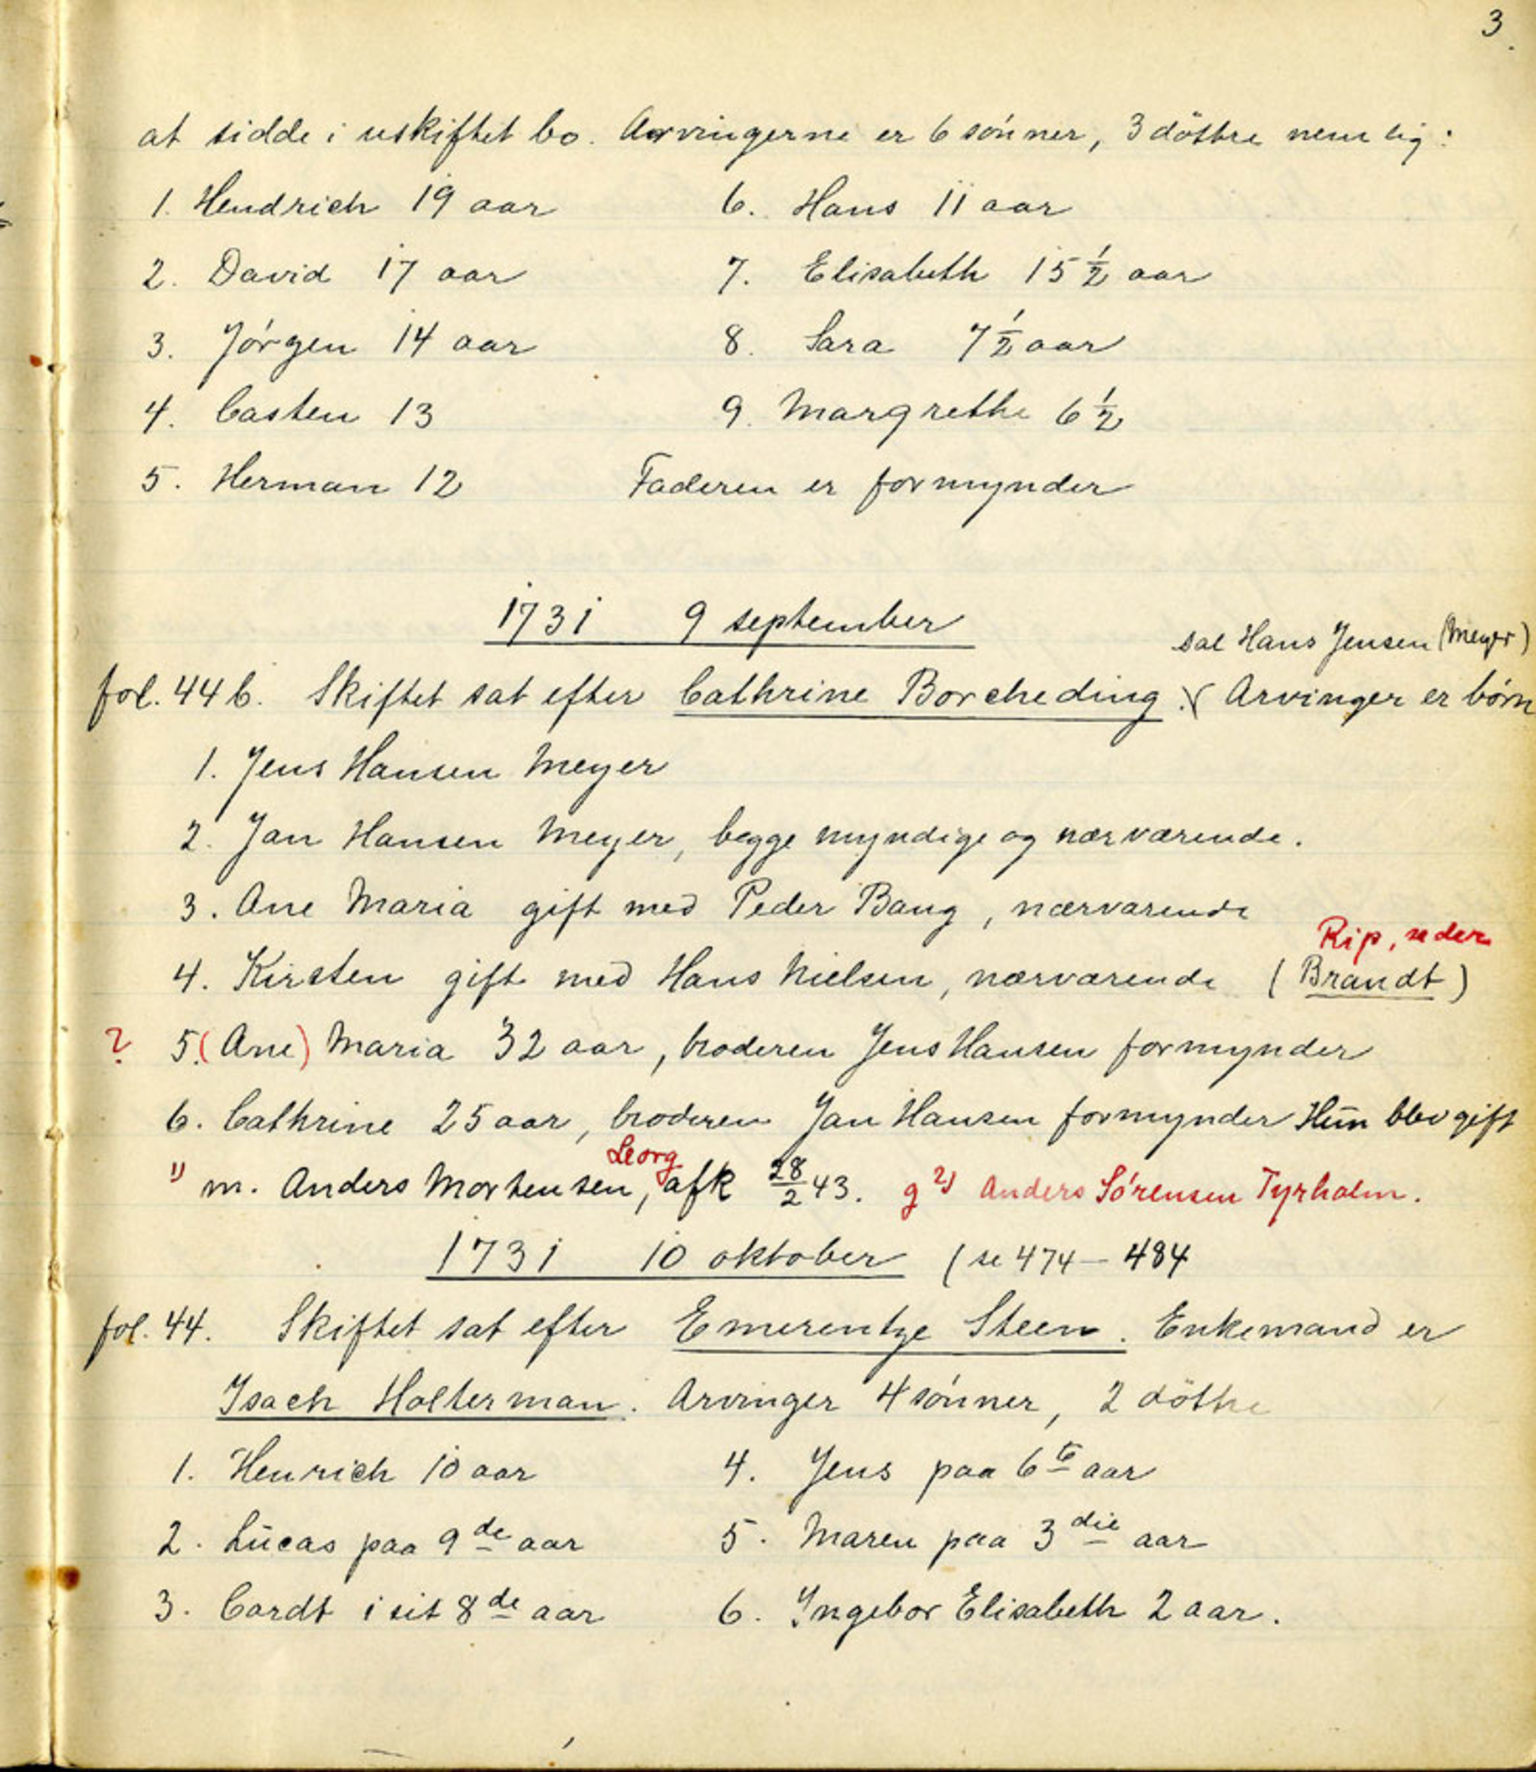 3.
at sidde i uskiftet bo. Arvingerne er 6 sønner, 3 döttre nemlig:
1. Hendrich 19 aar
2. David 17 aar
3. Jørgen 14 aar
4. Casten 13
5. Herman 12
6. Hans 11 aar
7. Elisabeth 15 ½ aar
8. Sara 7 ½ aar
9. Margrethe 6 ½
Faderen er formynder
1731 9 september
sal Hans Jensen (Meyer)
fol. 44 b. Skiftet sat efter Cathrine Borcheding. Arvinger er børn
1. Jens Hansen Meyer
2. Jan Hansen Meyer, begge myndige og nærværende.
3. Ane Maria gift med Peder Bang, nærværende
Rip,
4. Kirsten gift med Hans Nielsen, nærværende (Brandt)
? 5. (Ane) Maria 32 aar, broderen Jens Hansen formynder
6. Cathrine 25 aar, broderen Jan Hansen formynder Hun blev gift
Leorg
1) m. Anders Mortensen, afk 28/2 43. g 2) Anders Sørensen Tyrholm.
1731 10 oktober (se 474 – 484
fol. 44. Skiftet sat efter Emerentze Steen. Enkemand er
Isach Holterman. Arvinger 4 sønner, 2 döttre
1. Henrich 10 aar
2. Lucas paa 9de aar
3. Cordt i sit 8de aar
4. Jens paa 6te aar
5. Maren paa 3die aar
6. Ingebor Elisabeth 2 aar.